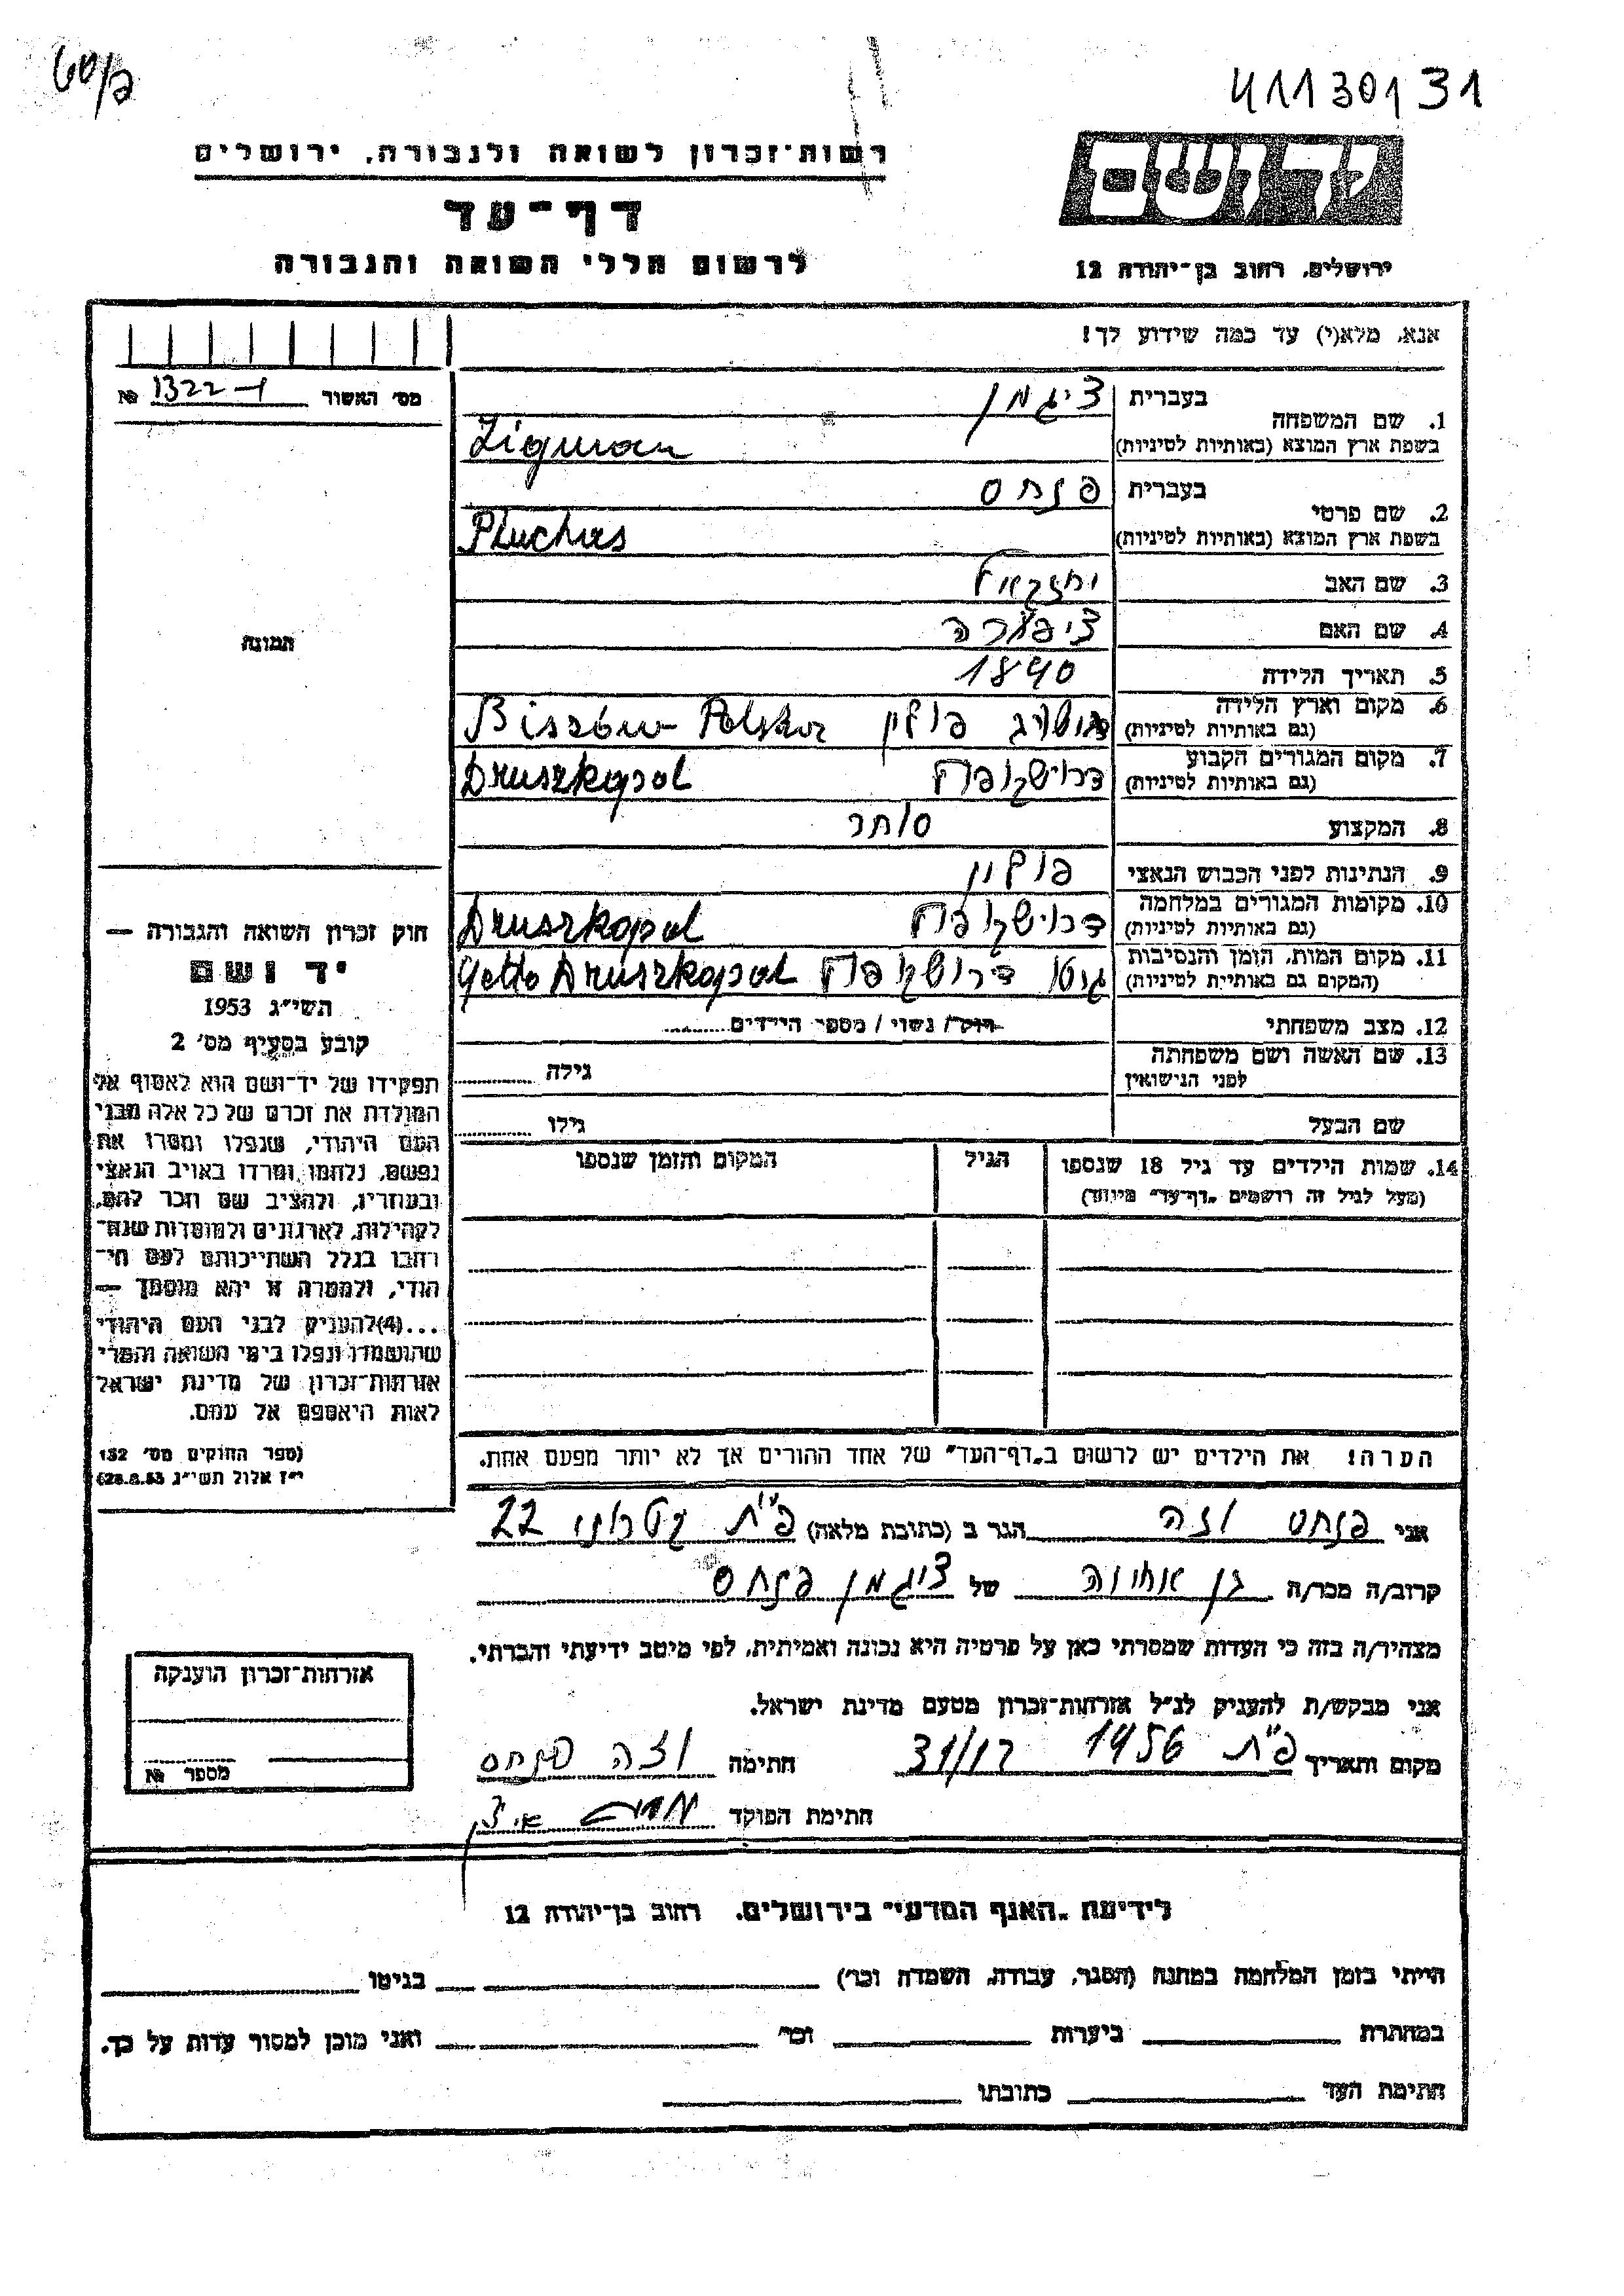 41130131
60/ק
רשות־זכרון לשואה ולגבורה, ירושלים
יד ושם
דף־עד
לרשום חללי השואה והגבורה
ירושלים, רחוב בן־יהודה 12
אנא, מלא(י) עד כמה שידוע לך!
מס׳ האשור № 1322
1. שם המשפחה
בעברית ציגמן
בשפת ארץ המוצא (באותיות לטיניות) Zigman
2. שם פרטי
בעברית פנחס
בשפת ארץ המוצא (באותיות לטיניות) Pinchas
3. שם האב יחזקאל
4. שם האם ציפורה
5. תאריך הלידה 1890
6. מקום וארץ הלידה
(גם באותיות לטיניות) פולין Polska
7. מקום המגורים הקבוע
(גם באותיות לטיניות) דרוישקופול Druszkopol
8. המקצוע סוחר
9. הנתינות לפני הכבוש הנאצי פולין
10. מקומות המגורים במלחמה
(גם באותיות לטיניות) דרוישקופול Druszkopol
11. מקום המות, הזמן והנסיבות
(המקום גם באותיות לטיניות) גטו דרוישקופול Getto Druszkopol
12. מצב משפחתי רוק/ נשוי / מספר הילדים
13. שם האשה ושם משפחתה
לפני הנישואין גילה
שם הבעל גילו
14. שמות הילדים עד גיל 18 שנספו הגיל המקום והזמן שנספו
(מעל לגיל זה רושמים „דף־עד״ מיוחד)
הערה! את הילדים יש לרשום ב„דף־העד״ של אחד ההורים אך לא יותר מפעם אחת.
תמונה
חוק זכרון השואה והגבורה —
יד ושם
תשי״ג 1953
קובע בסעיף מס׳ 2
תפקידו של יד־ושם הוא לאסוף אל
המולדת את זכרם של כל אלה מבני
העם היהודי, שנפלו ומסרו את
נפשם, נלחמו ומרדו באויב הנאצי
ובעוזריו, ולהציב שם וזכר להם,
לקהילות, לארגונים ולמוסדות שנח־
רבו בגלל השתייכותם לעם הי־
הודי, ולמטרה זו יהא מוסמך —
...(4)להעניק לבני העם היהודי
שהושמדו ונפלו בימי השואה והמרי
אזרחות־זכרון של מדינת ישראל
לאות היאספם אל עמם.
(ספר החוקים מס׳ 132
י״ז אלול תשי״ג 28.8.53)
אני פנחס וזה הגר ב (כתובת מלאה) פ״ת 22
קרוב/ה מכר/ה בן אחיה של ציגמן פנחס
מצהיר/ה בזה כי העדות שמסרתי כאן על פרטיה היא נכונה ואמיתית, לפי מיטב ידיעתי והכרתי.
אני מבקש/ת להעניק לנ״ל אזרחות־זכרון מטעם מדינת ישראל.
מקום ותאריך פ״ת 1956 31/12 חתימה וזה פנחס
חתימת הפוקד
אזרחות־זכרון הוענקה
מספר №
לידיעת „האגף המדעי״ בירושלים, רחוב בן־יהודה 12
הייתי בזמן המלחמה במחנה (הסגר, עבודה, השמדה וכו׳) בגיטו
במחתרת ביערות וכו׳ ואני מוכן למסור עדות על כך.
חתימת העד כתובתו